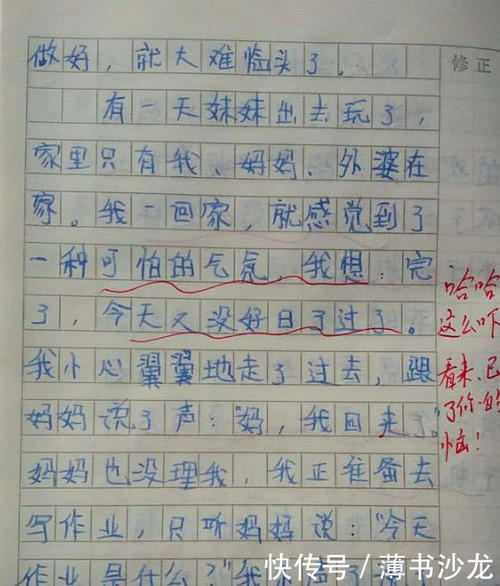 做好，就大难临头了。
修正
有一天妹妹出去玩了，
家里只有我、妈妈、外婆在
家。我一回家，就感觉到了
一种可怕的气氛，我想：完
了，今天又没好日子过了。
哈哈
这么吓
我小心翼翼地走了过去，跟
看来，已
妈妈说了声："妈，我回来了"
了你的
恼！
妈妈也没理我，我正准备去
写作业，只听妈妈说："今天
作业是什么？"我
快传号／薄书沙龙